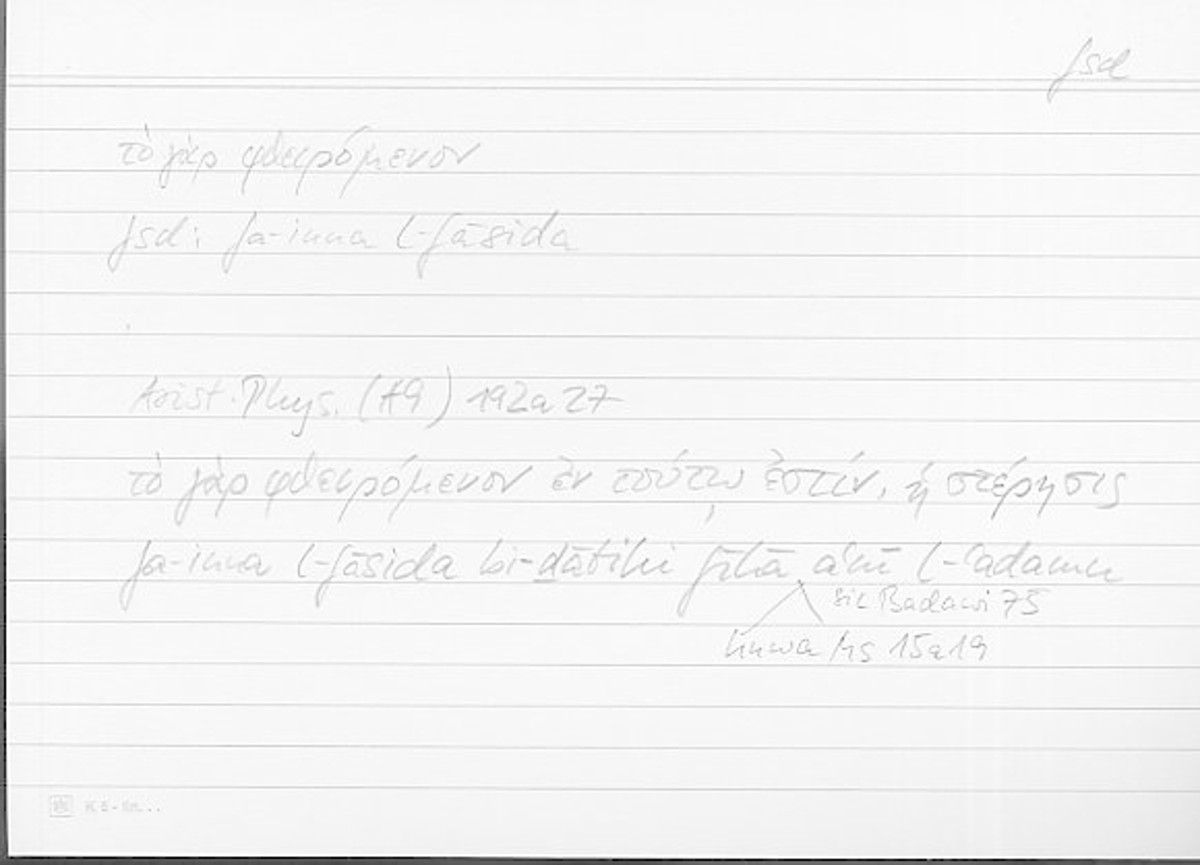 fsd
τὸ γὰρ φθειρόμενον
fsd: fa-inna l-fāsida
Arist. Phys. (A9) 192a27
τὸ γὰρ φθειρόμενον ἐν τούτῳ ἐστίν, ἡ στέρησις
fa-inna l-fāsida bi-ḏātihi fīhā aʿnī l-ʿadamu
sic Badawi 75
huwa Hs 15a19